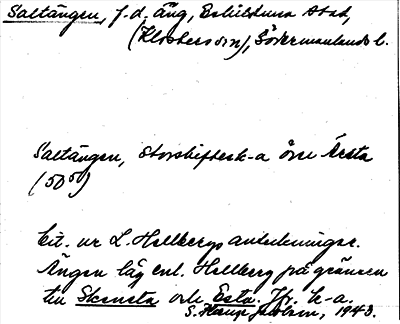 Saltängen, f.d. äng, Eskilstuna stad,
(Klosters sn), Södermanlands l.
Saltängen, Storskifteska över Årsta
(50)
Cit. ur L. Hellbergs anteckningar.
Ängen låg enl. Hellberg på gränsen
till Skensta och Esta. Jfr. k-a.
S. 1943.